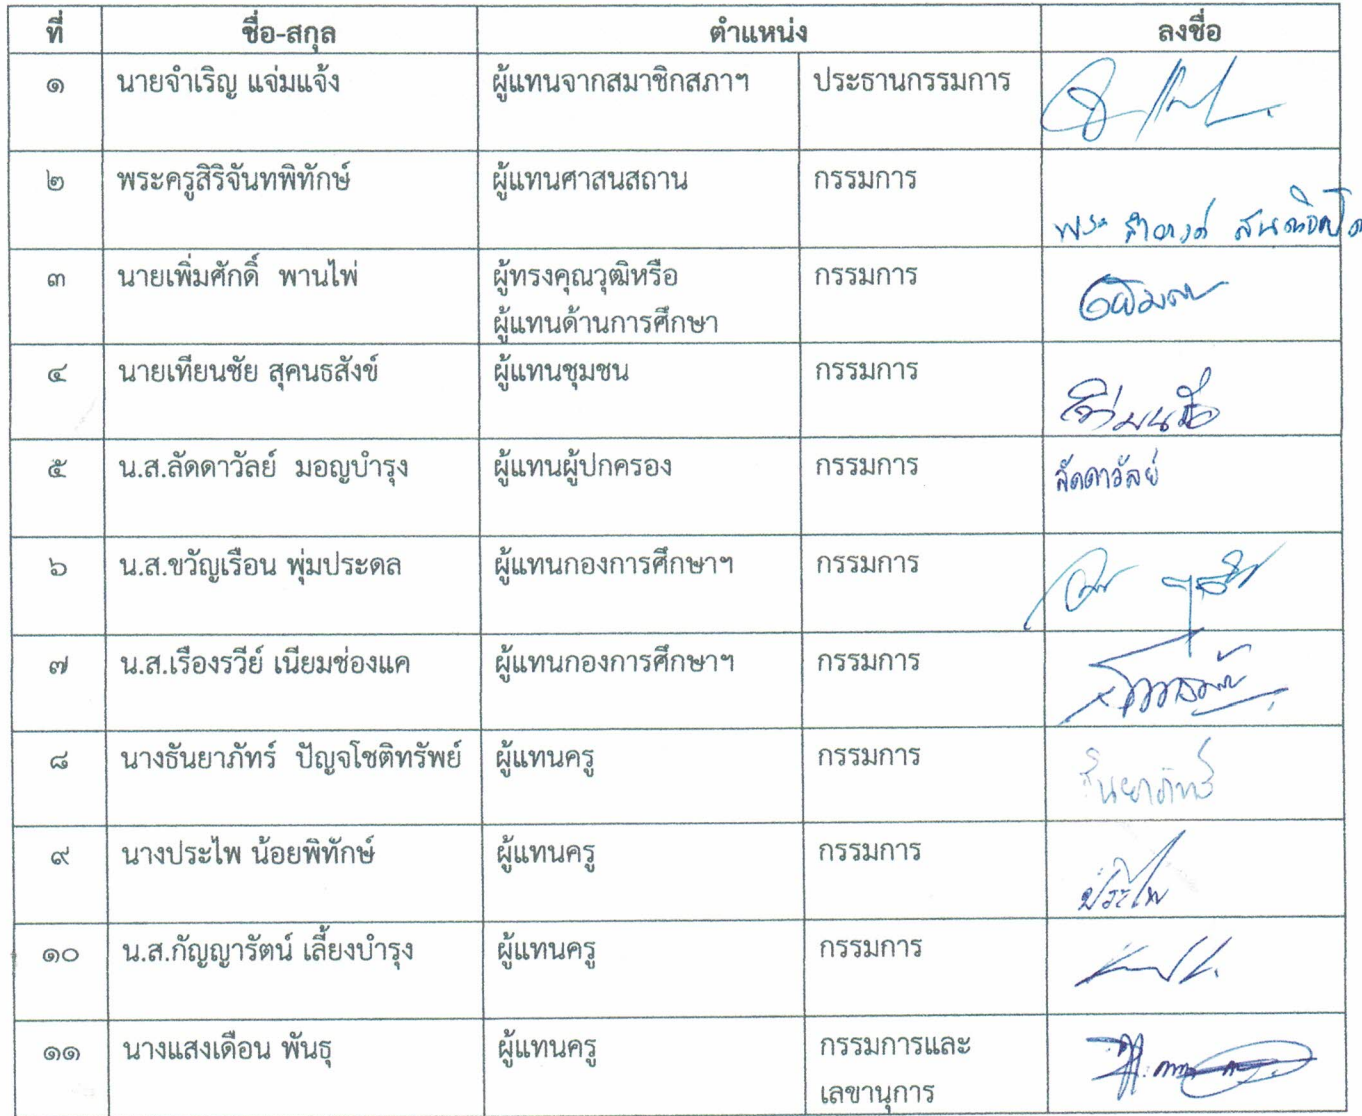 ที่ ชื่อ-สกุล ตำแหน่ง ลงชื่อ
๑ นายจำเริญ แจ่มแจ้ง ผู้แทนจากสมาชิกสภาฯ ประธานกรรมการ
๒ พระครูสิริจันทพิทักษ์ ผู้แทนศาสนสถาน กรรมการ
พระ
๓ นายเพิ่มศักดิ์ พานไพ่ ผู้ทรงคุณวุฒิหรือ กรรมการ
ผู้แทนด้านการศึกษา
๔ นายเทียนชัย สุคนธสังข์ ผู้แทนชุมชน กรรมการ
๕ น.ส.ลัดดาวัลย์ มอญบำรุง ผู้แทนผู้ปกครอง กรรมการ ลัดดาวัลย์
๖ น.ส.ขวัญเรือน พุ่มประดล ผู้แทนกองการศึกษาฯ กรรมการ
๗ น.ส.เรืองรวีย์ เนียมช่องแค ผู้แทนกองการศึกษาฯ กรรมการ
๘ นางธันยาภัทร์ ปัญจโชติทรัพย์ ผู้แทนครู กรรมการ
ธันยาภัทร์
๙ นางประไพ น้อยพิทักษ์ ผู้แทนครู กรรมการ
ประไพ
๑๐ น.ส.กัญญารัตน์ เลี้ยงบำรุง ผู้แทนครู กรรมการ
๑๑ นางแสงเดือน พันธุ ผู้แทนครู กรรมการและ
เลขานุการ